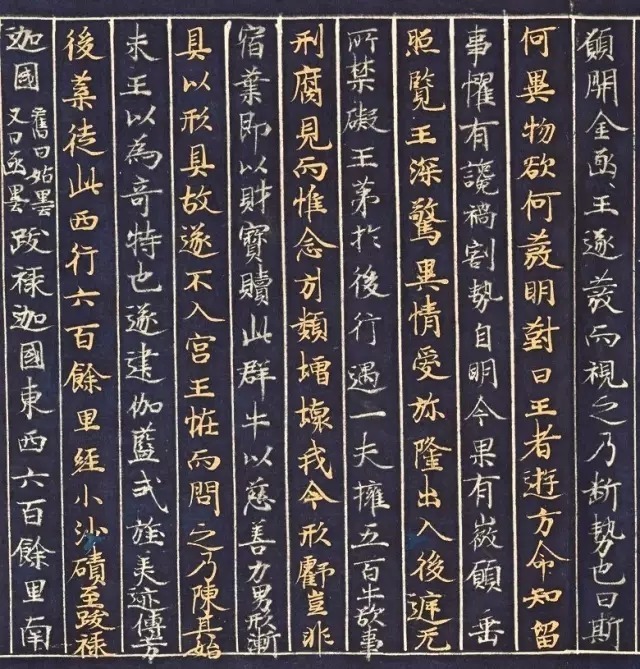 願開金函王遂發而視之乃斷勢也曰斯
何異物欲何發明對曰王者遊方命知留
事懼有讒禍割勢自明今果有徵願垂
照覽王深驚異情愛弥隆出入後庭无
所禁礙王弟於後行遇一夫擁五百牛欲事
刑腐見而惟念引類增懷我今形虧豈非
宿葉即以財寶贖此群牛以慈善力男形漸
具以形具故遂不入宮王恠而問之乃陳其始
末王以為奇特也遂建伽藍式旌美迹傳芳
後葉從此西行六百餘里經小沙磧至跋禄
迦國舊曰姑曇又曰亟曇跋禄迦國東西六百餘里南